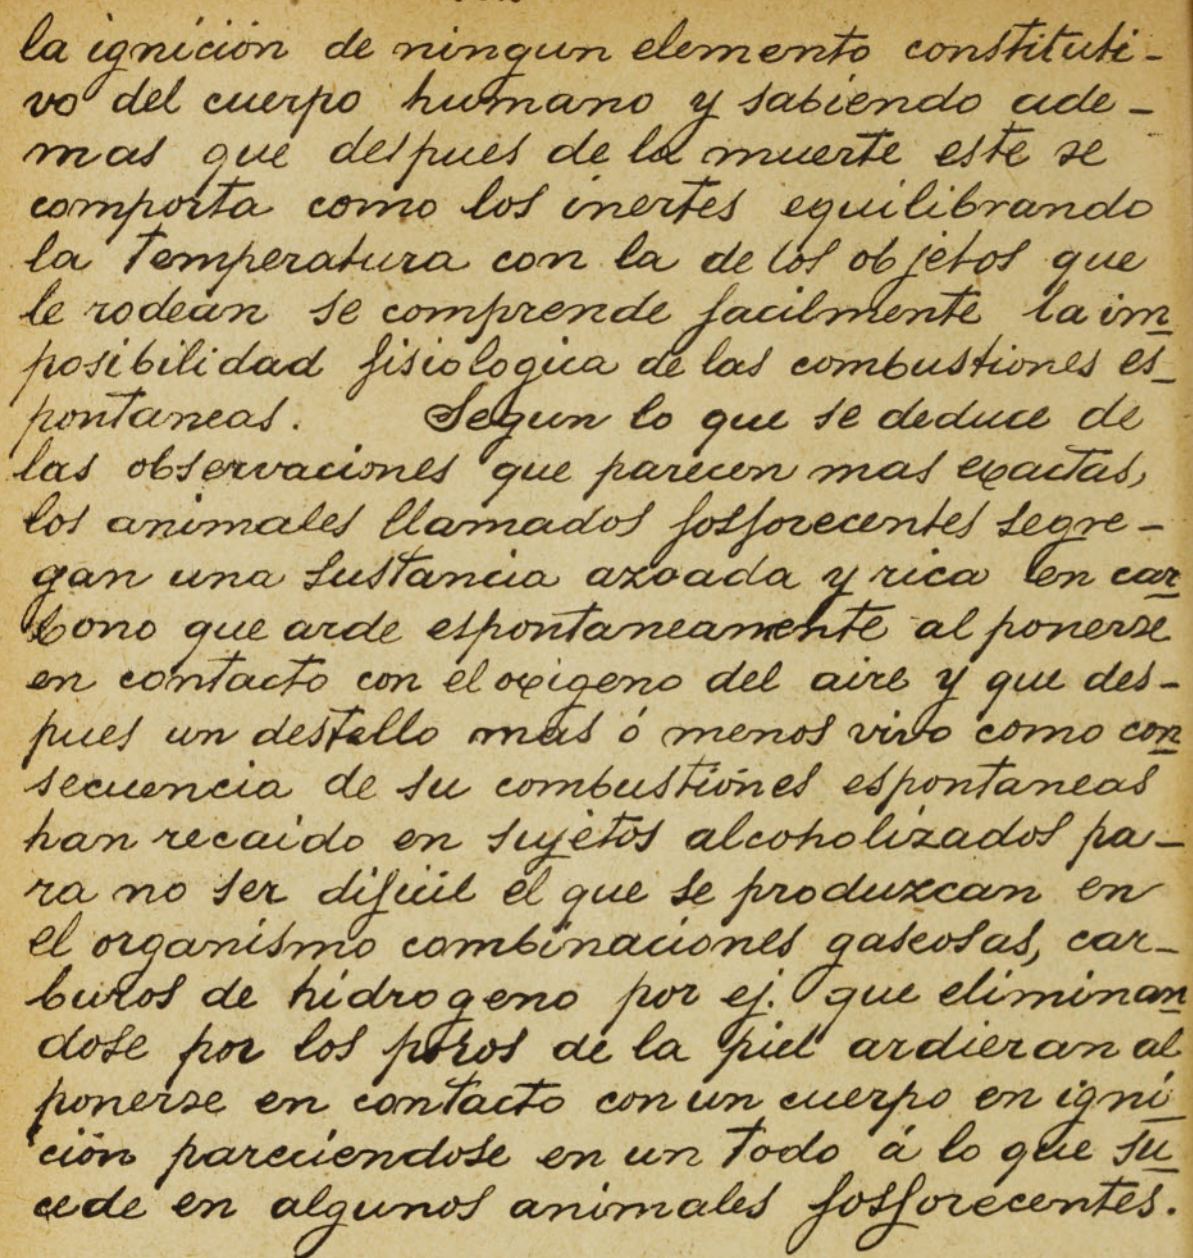 la ignición de ningun elemento constituti-
vo del cuerpo humano y sabiendo ade-
mas que despues de la muerte este se
comporta como los inertes equilibrando
la temperatura con la de los objetos que
le rodean se comprende facilmente la im
posibilidad fisiologica de las combustiones es-
pontaneas. Segun lo que se deduce de
las observaciones que parecen mas exactas,
los animales llamados fosforecentes segre-
gan una sustancia azoada y rica en car
bono que arde espontaneamente al ponerse
en contacto con el oxigeno del aire y que des-
pues un destello mas ó menos vivo como con
secuencia de su combustiones espontaneas
han recaido en sujetos alcoholizados pa-
ra no ser dificil el que se produzcan en
el organismo combinaciones gaseosas, car-
buros de hidrogeno por ej. que eliminan
dose por los poros de la piel ardieran al
ponerse en contacto con un cuerpo en igni
ción pareciendose en un todo á lo que su
cede en algunos animales fosforecentes.